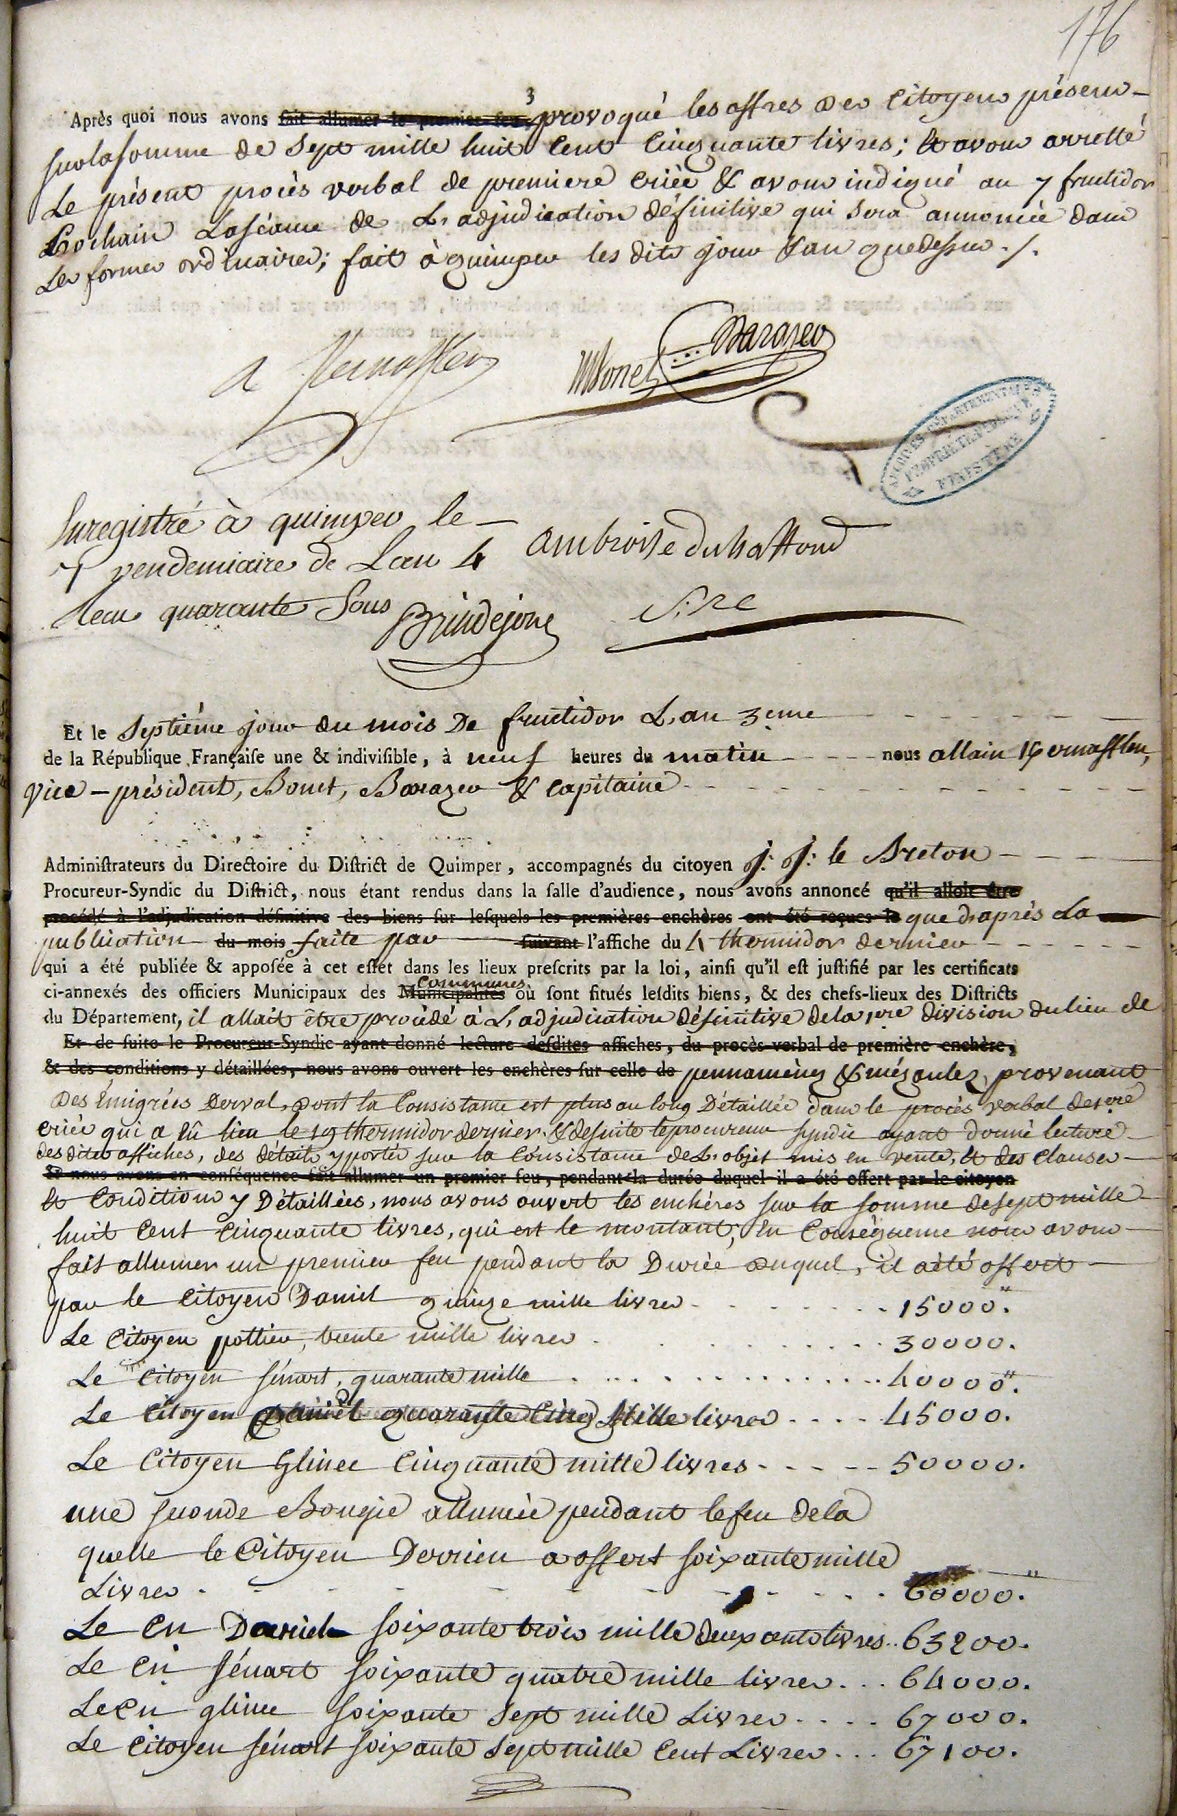 176
3
Après quoi nous avons fait allumer le premier feu, provoqué les offres des Citoyens présens
sur la somme de Sept mille huit Cent Cinquante livres; & avons arretté
Le présent procès verbal de premiere criée & avons indiqué au 7 fructidor
Prochain La séance de L'adjudication définitive qui sera annoncée dans
Les formes ordinaires; fait à quimper les dits jour & an que dessus ./.
Bonet Barazer
ARCHIVES DÉPARTEMENTALES
PROPRIÉTÉ PUBLIQUE
FINISTÈRE
Enregistré à quimper le
7 vendemiaire de L'an 4
Reçu quarante Sous
Brindejonc
Et le Septiéme jour du mois De fructidor L'an 3eme
de la République Françaiſe une & indiviſible, à neuf heures du matin nous allain
Vice-président, Bonet, Barazer & Capitaine
Adminiſtrateurs du Directoire du Diſtrict de Quimper, accompagnés du citoyen J: J: le Breton
Procureur-Syndic du Diſtrict, nous étant rendus dans la ſalle d'audience, nous avons annoncé qu'il alloit être
procédé à l'adjudication définitive des biens ſur leſquels les premières enchères ont été reçues le que d'après La
publication du mois faite par ſuivant l'affiche du 4 thermidor dernier
qui a été publiée & appoſée à cet effet dans les lieux preſcrits par la loi, ainſi qu'il eſt juſtifié par les certificats
communes
ci-annexés des officiers Municipaux des Municipalités où ſont ſitués leſdits biens, & des chefs-lieux des Diſtricts
du Département, il allait être procédé à L'adjudication définitive de la 1ere division du lieu de
Et de ſuite le Procureur-Syndic ayant donné lecture deſdites affiches, du procès-verbal de première enchère,
& des conditions y détaillées, nous avons ouvert les enchères ſur celle de provenant
Des Émigrés Derval, dont la Consistance est plus au long Détaillée dans le procès verbal de 1ere
criée qui a eû lieu le 19 thermidor dernier & de suite le procureur syndic ayant donné lecture
des dites affiches, des détails y portés sur la Consistance de L'objet mis en vente, & des Clauses
Et nous avons en conſéquence fait allumer un premier feu, pendant la durée duquel il a été offert par le citoyen
& Conditions y Détaillées, nous avons ouvert les enchéres sur la somme de sept mille
huit Cent Cinquante livres, qui est le montant; En Conséquence nous avons
fait allumer un premier feu pendant la Durée duquel, il a été offert
par le Citoyen Daniel quinze mille livres 15000.
Le Citoyen pottier, trente mille livres 30000.
Le Citoyen sénart, quarante mille 40000.
Le Citoyen Daniel quarante Cinq Mille livres 45000.
Le Citoyen Glinec Cinquante mille livres 50000.
une seconde Bougie allumée pendant le feu de la
quelle le Citoyen Derrien a offert soixante mille
Livres 60000.
Le Cn Daniel soixante trois mille deux cents livres 63200.
Le Cn sénart soixante quatre mille livres 64000.
Le Cn glinec soixante Sept mille Livres 67000.
Le Citoyen sénart soixante Sept mille Cent Livres 67100.